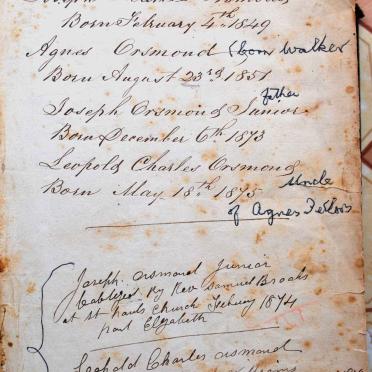 Born February 4th 1849
Agnes Orsmond (born Walker
Born August 23rd 1851
father
Joseph Orsmond Junior.
Born December 6th 1873
Leopold Charles Orsmond
Born May 18th 1875 Uncle
of Agnes
Joseph Orsmond Junior
babtized By Rev Samuel Brooks
at St Pauls Church Febuary 1874
port Elizabeth
Leopold Charles Orsmond